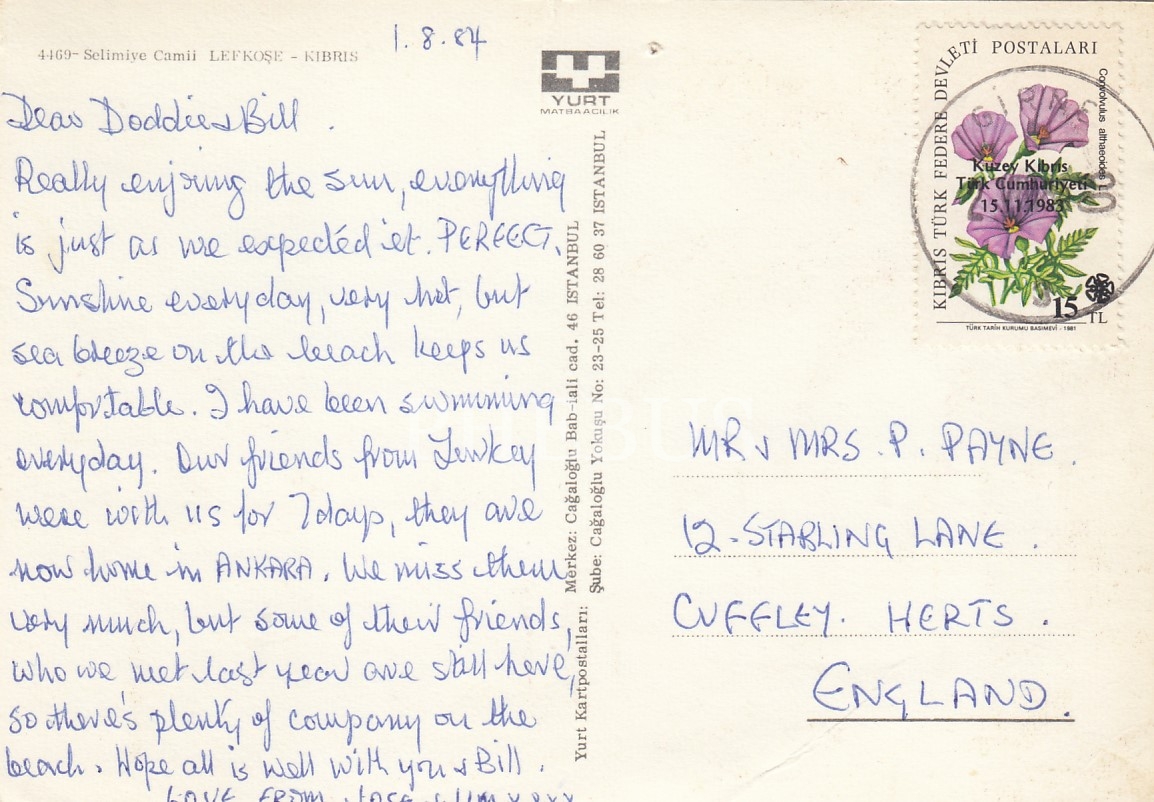 4469- Selimiye Camii LEFKOŞE - KIBRIS
1.8.84
YURT
MATBAACILIK
Dear Doddie & Bill.
Really enjoing the sun, everything
is just as we expected it. PERFECT.
Sunshine everyday, very hot, but
sea breeze on the beach keeps us
comfortable. I have been swimming
everyday. Our friends from Turkey
were with us for 7 days, they are
now home in ANKARA. We miss them
very much, but some of their friends,
who we met last year are still here,
so there's plenty of company on the
beach. Hope all is well with you & Bill.
LOVE FROM
Yurt Kartpostalları: Merkez: Cağaloğlu Bab-iali cad. 46 ISTANBUL
Şube: Cağaloğlu Yokuşu No: 23-25 Tel: 28 60 37 ISTANBUL
KIBRIS TÜRK FEDERE DEVLETİ POSTALARI
Convolvulus althaeoides L.
GİRNE
Kuzey Kıbrıs
Türk Cumhuriyeti
15.11.1983
15 TL
TÜRK TARİH KURUMU BASIMEVİ - 1981
MR & MRS. P. PAYNE.
12. STABLING LANE.
CUFFLEY. HERTS.
ENGLAND.